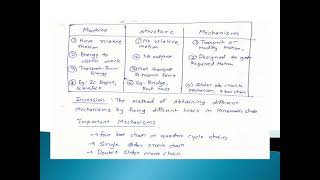 Machine | Structure | Mechanism
① Have relative motion | ① No relative motion | ① Transmit or Modify Motion
② Energy to useful work | ② No output | ② Designed to get Required Motion
③ Transmit Power Energy | ③ Not transmit It transmit force
④ Eg: IC Engine | ④ Eg: Bridge, Roof truss | ③ slider crank Mechanism, 4 bar chain
Inversion: The method of obtaining different
Mechanisms by fixing different links in kinematic chain
Important Mechanisms
→ four bar chain or quadric cycle chain
→ Single slider crank chain
→ Double slider crank chain